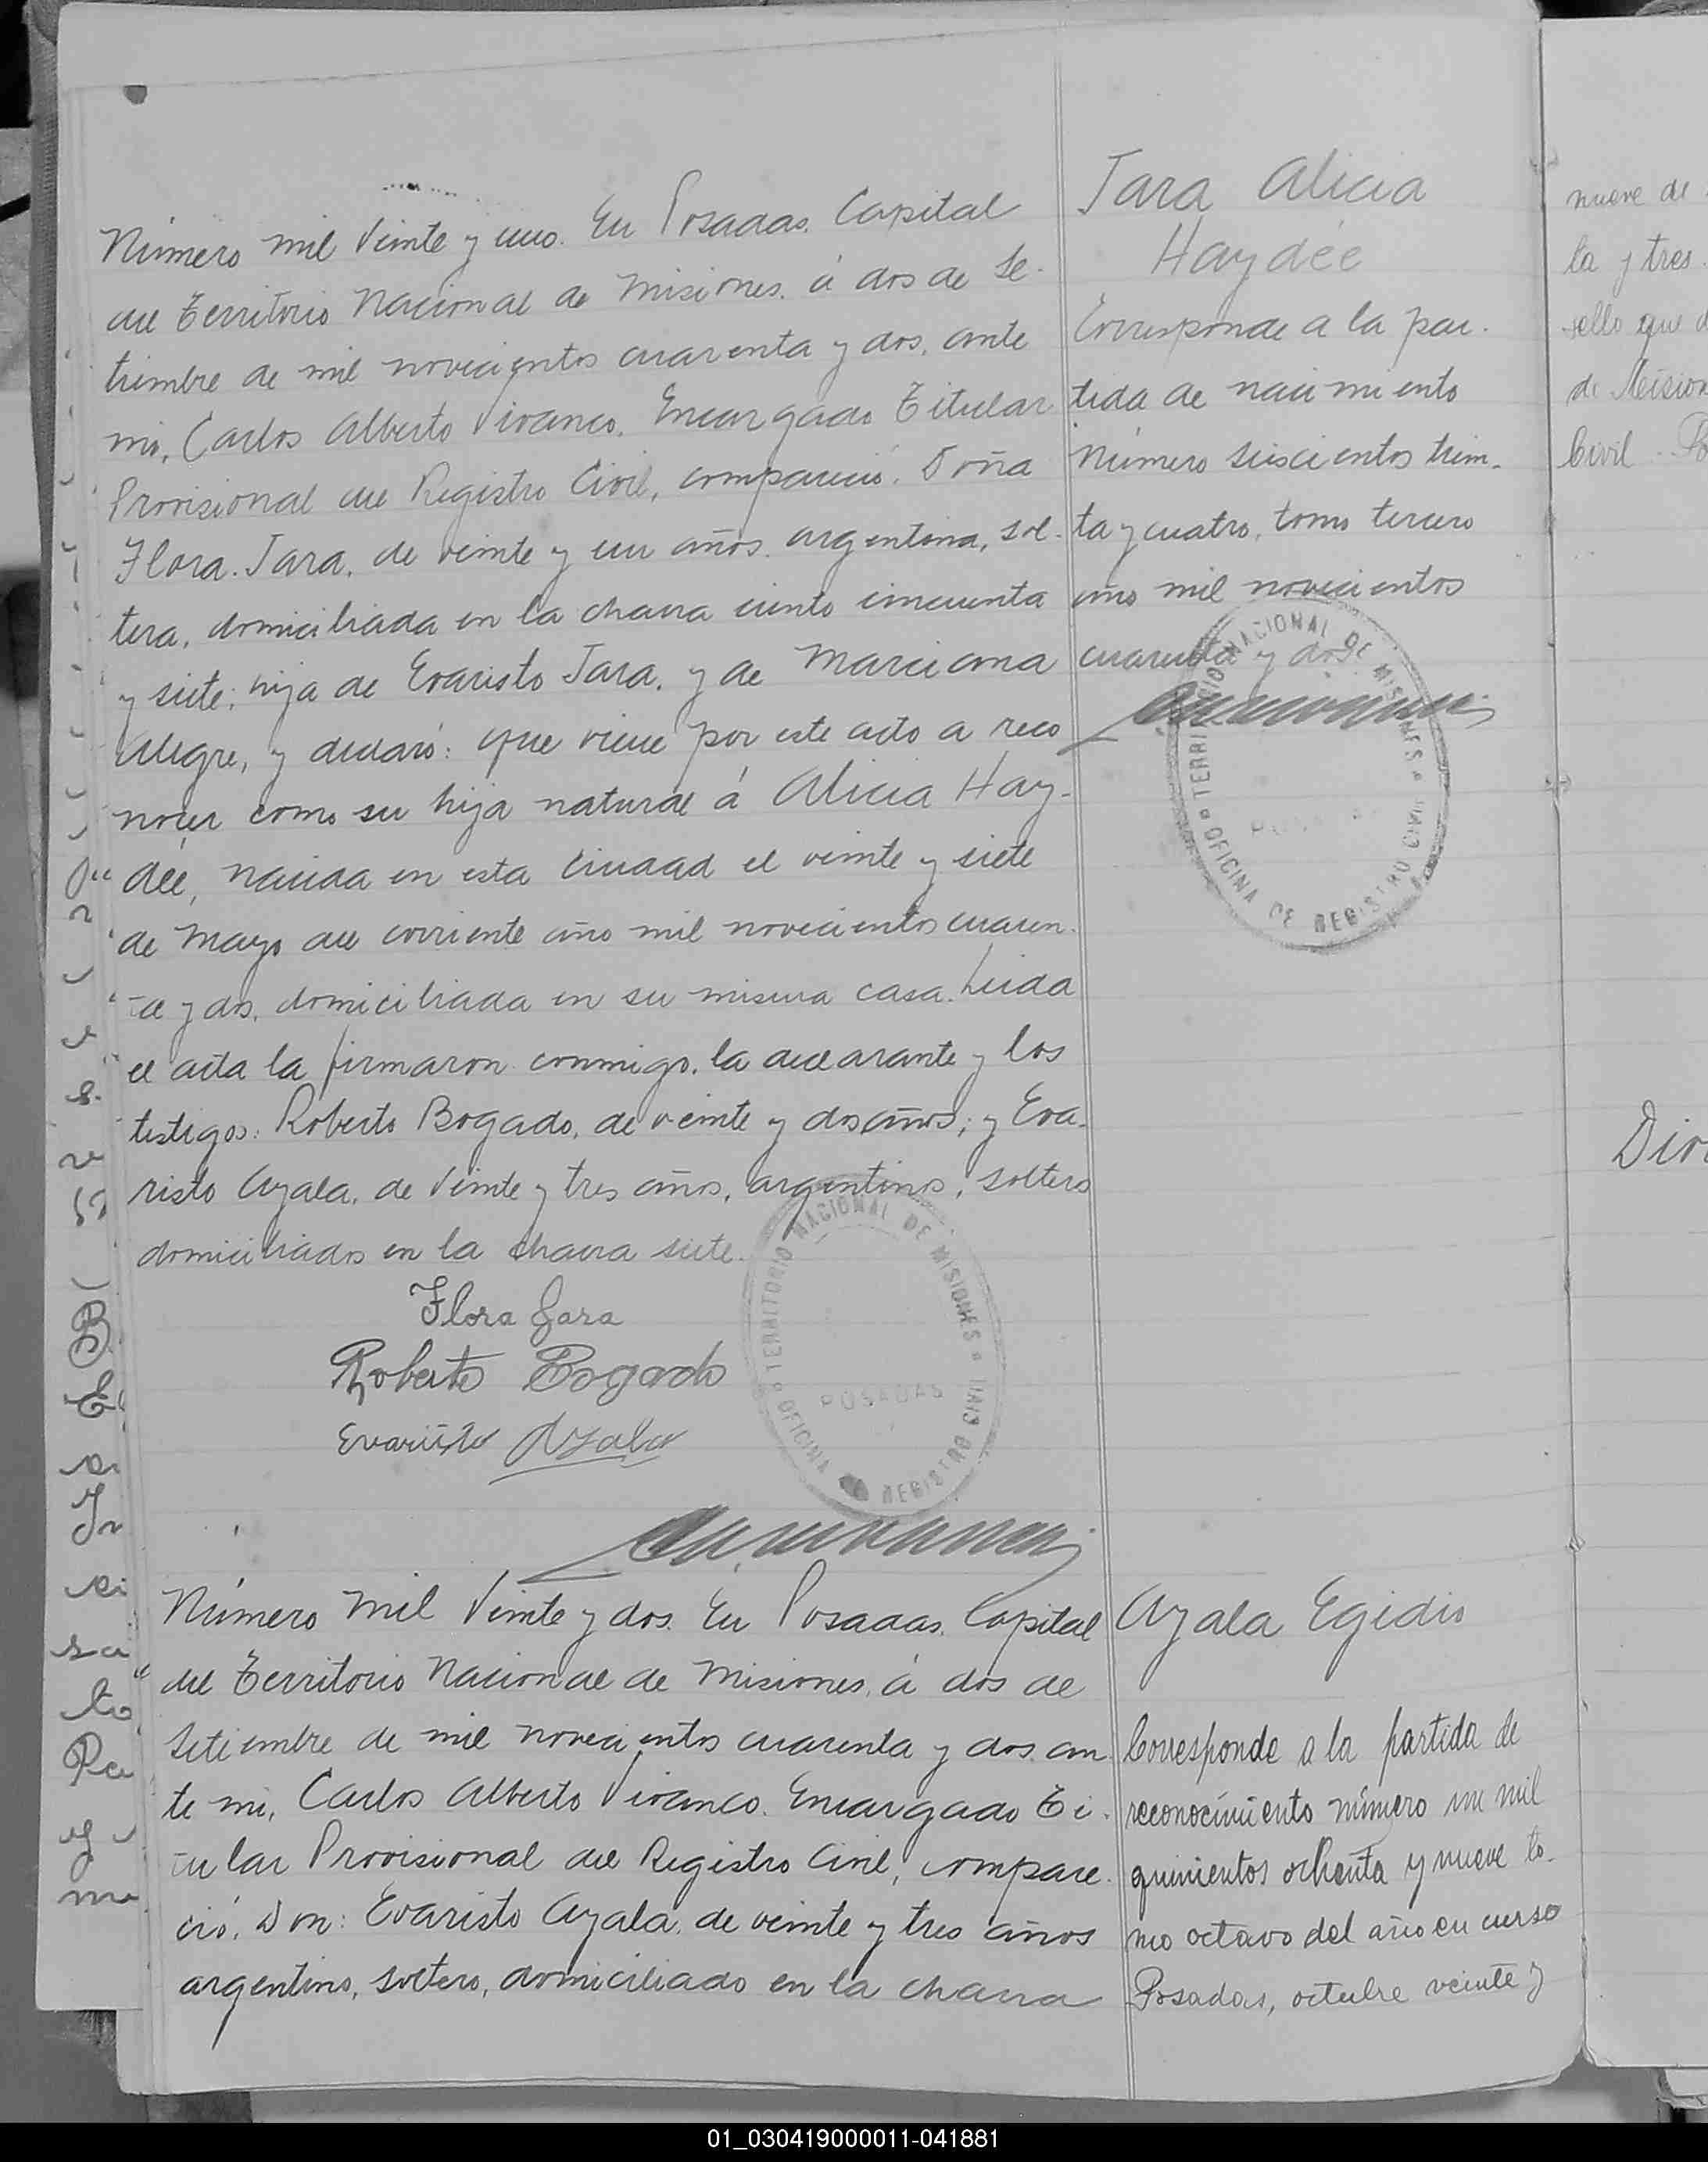 Número mil veinte y uno. En Posadas. Capital
del Territorio Nacional de Misiones. á dos de Se-
tiembre de mil novecientos cuarenta y dos, ante
mi, Carlos Alberto Vivanco. Encargado Titular
Provisional del Registro Civil, compareció. Doña
Flora. Jara. de veinte y un años. argentina, sol-
tera, domiciliada en la chacra ciento cincuenta
y siete; hija de Evaristo Jara. y de Marciana
Alegre, y declaró: que viene por este acto a reco
nocer como su hija natural á Alicia Hay-
dée, nacida en esta Ciudad el veinte y siete
de Mayo del corriente año mil novecientos cuaren-
ta y dos, domiciliada en su misma casa. Leida
el acta la firmaron conmigo, la declarante y los
testigos: Roberto Bogado, de veinte y dos años; y Eva-
risto Ayala, de veinte y tres años, argentinos, solteros
domiciliados en la chacra siete.
Flora Jara
Roberto Bogado
Evaristo Ayala
TERRITORIO NACIONAL DE MISIONES
POSADAS
OFICINA DE REGISTRO CIVIL
Jara Alicia
Haydée
Corresponde a la par-
tida de nacimiento
Número seiscientos trein-
ta y cuatro, tomo tercero
año mil novecientos
cuarenta y dos.
TERRITORIO NACIONAL DE MISIONES
POSADAS
OFICINA DE REGISTRO CIVIL
Número mil Veinte y dos. En Posadas. Capital
del Territorio Nacional de Misiones, á dos de
Setiembre de mil novecientos cuarenta y dos, an-
te mi, Carlos Alberto Vivanco. Encargado Ti-
tular Provisional del Registro Civil, compare-
ció, Don: Evaristo Ayala, de veinte y tres años
argentino, soltero, domiciliado en la chacra
Ayala Egidio
Corresponde a la partida de
reconocimiento número un mil
quinientos ochenta y nueve to-
mo octavo del año en curso
Posadas, octubre veinte y
nueve de
la y tres.
sello que d
de Mision
Civil.
Dir
01_030419000011-041881